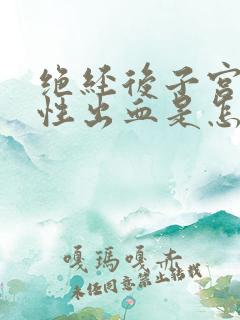 绝经後子宫
性出血是怎
嘎瑪嘎赤
未经同意禁止转载